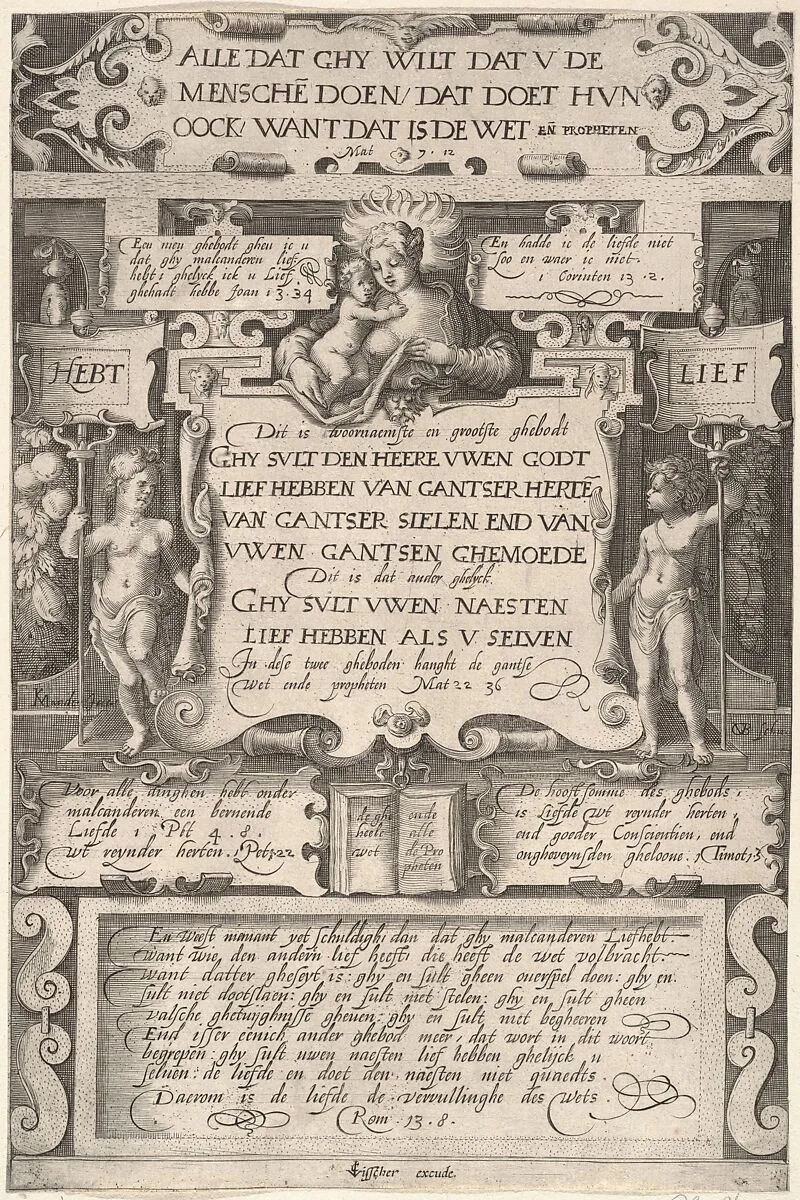 ALLE DAT GHY WILT DAT V DE
MENSCHĒ DOEN/ DAT DOET HVN
OOCK/ WANT DAT IS DE WET EÑ PROPHETEN
Mat 7. 12
Een nieu ghebodt gheu ic u
dat ghy malcanderen lief
hebt: ghelyck ick u Lief
ghehadt hebbe Joan 13.34
En hadde ic de liefde niet
soo en waer ic niet.
1 Corinten 13.2.
HEBT
LIEF
Dit is voornaemste en grootste ghebodt
GHY SVLT DEN HEERE VWEN GODT
LIEF HEBBEN VAN GANTSER HERTĒ
VAN GANTSER SIELEN END VAN
VWEN GANTSEN GHEMOEDE
Dit is dat ander ghelyck.
GHY SVLT VWEN NAESTEN
LIEF HEBBEN ALS V SELVEN
In dese twee gheboden hanght de gantse
Wet ende propheten Mat 22 36
Voor alle dinghen hebt onder
malcanderen een bernende
Liefde 1 Pet 4.8.
wt reynder herten. 1 Pet 1.22
de ghe
heele
wet
ende
alle
de Pro
pheten
De hooft somme des ghebods,
is Liefde wt reynder herten,
end goeder Conscientien, end
onghoveynsden gheloove. 1 Timot 1.5
En Weest niemant yet schuldigh: dan dat ghy malcanderen Liefhebt.
Want wie den andern lief heeft: die heeft de wet volbracht.
Want datter gheseyt is: ghy en sult gheen overspel doen: ghy en
sult niet dootslaen: ghy en sult niet stelen: ghy en sult gheen
valsche ghetuyghnisse gheven: ghy en sult niet begheeren
End isser eenich ander ghebod meer, dat wort in dit woort
begrepen: ghy sult uwen naesten lief hebben ghelijck u
selven: de liefde en doet den naesten niet quaedts.
Daerom is de liefde de vervullinghe des Wets.
Rom. 13.8.
CVisscher excude.